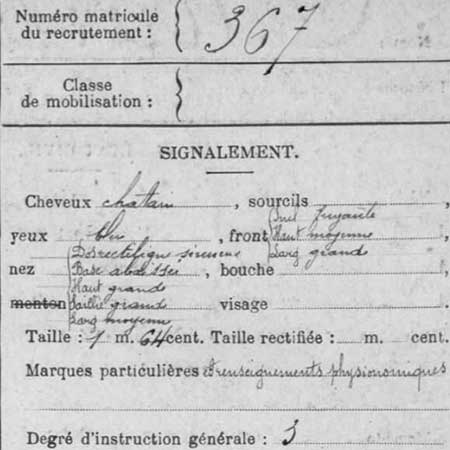 Numéro matricule
du recrutement : 367
Classe
de mobilisation :
SIGNALEMENT.
Cheveux châtain, sourcils ,
yeux bleu, front Incl fuyante
Haut moyenne
Larg grande
nez Dos rectiligne sinueux
Base abaissée
Haut grand
Saillie grand
Larg moyenne
, bouche ,
menton visage
Taille : 1 m. 64 cent. Taille rectifiée : m. cent.
Marques particulières renseignements physionomiques
Degré d'instruction générale : 3